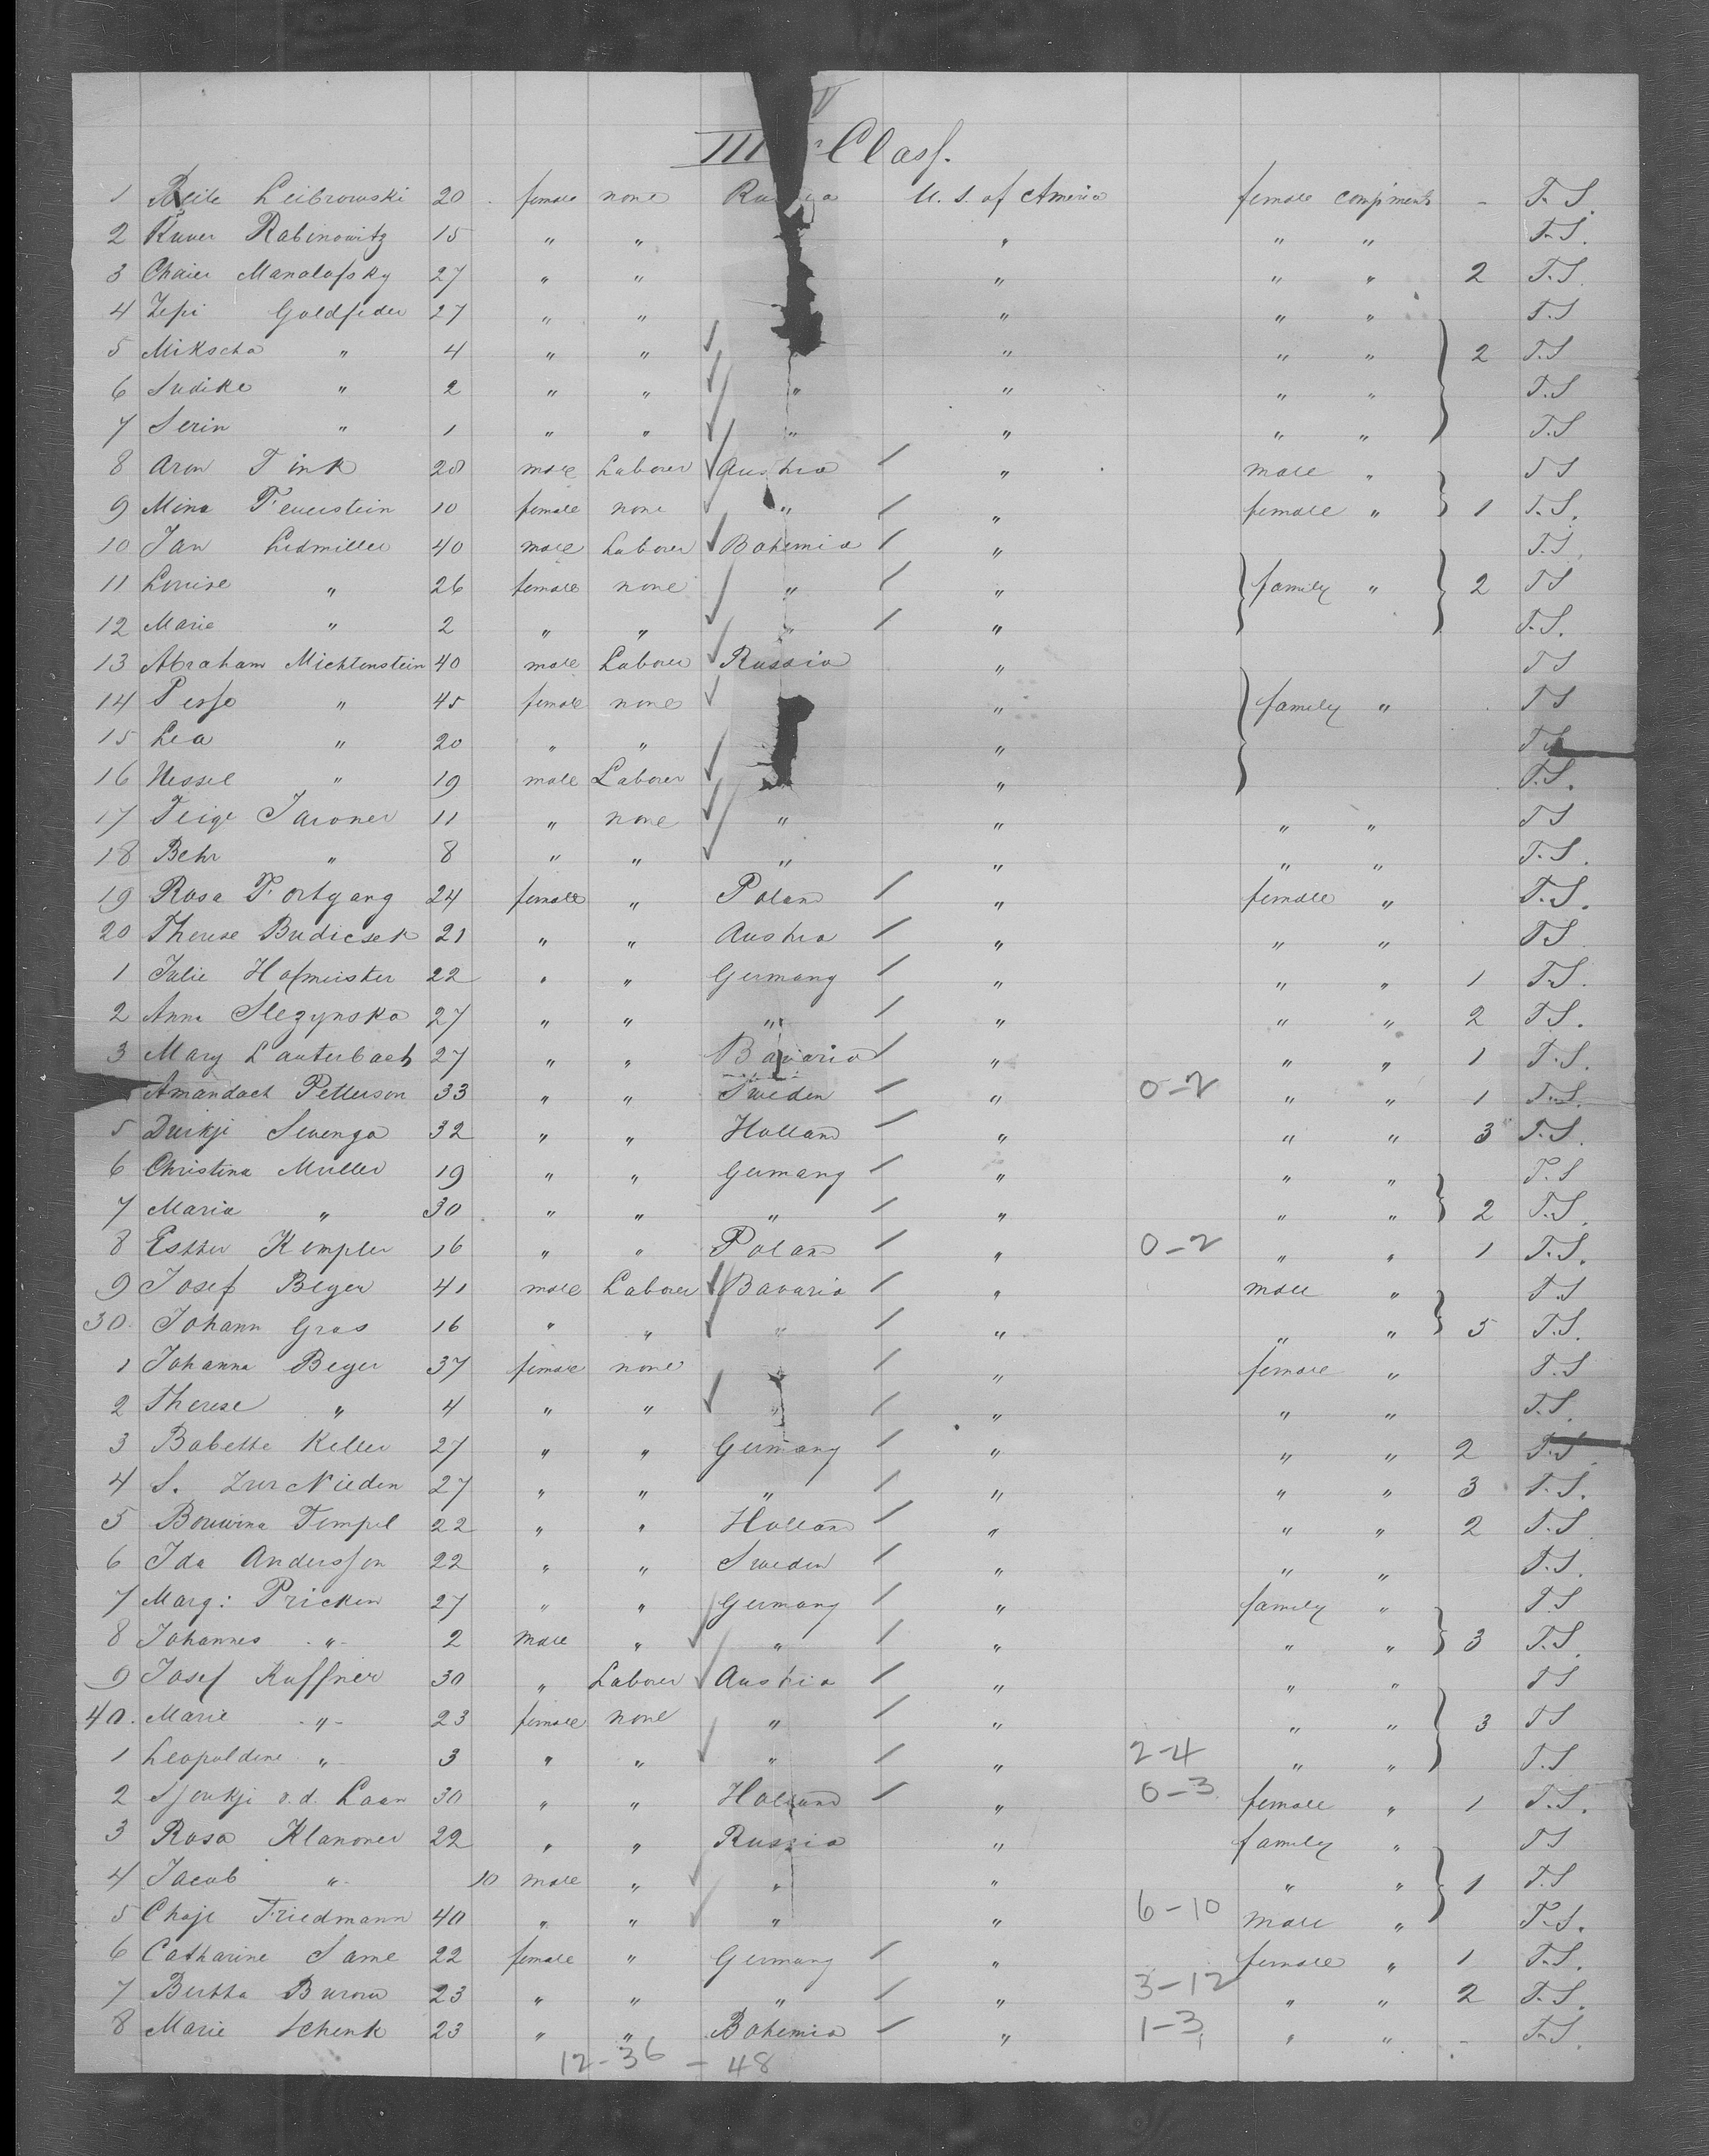 III Class.
1 Beile Leibrowski 20 female none Russia U. S. of America female compments - T. S.
2 Rabinowitz 15 " " " " " T. S.
3 Chaie Manolofsky 27 " " " " " 2 T. S.
4 Zepi Goldfeder 27 " " " " " T. S
5 Mikscha " 4 " " " " " 2 T. S
6 Judike " 2 " " " " " " T. S
7 Serin " 1 " " " " " " T. S
8 Aron Fink 28 male Laborer Austria " male " T S
9 Mina Feuerstein 10 female none " " female " 1 T. S.
10 Jan Ledmiller 40 male Laborer Bohemia " T. S.
11 Louise " 26 female none " " family " 2 T S
12 Marie " 2 " " " " T. S.
13 Abraham Michtenstein 40 male Laborer Russia " T S
14 Pesse " 45 female none " family " T S
15 Lea " 20 " " " T S
16 Nessel " 19 male Laborer " T. S.
17 Feige Jaroner 11 " none " " " " T S
18 Behr " 8 " " " " " " T. S.
19 Rosa Fortgang 24 female " Poland " female " T. S.
20 Therese Budicsek 21 " " Austria " " " T S
1 Julie Hofmeister 22 " " Germany " " " 1 T. S.
2 Anna Slezynska 27 " " " " " " 2 T S.
3 Mary Lauterbach 27 " " Bavaria " " " 1 T. S.
Amandach Petterson 33 " " Sweden " 0-2 " " 1 T. S.
5 Duikji Swenga 32 " " Holland " " " 3 T. S.
6 Christina Muller 19 " " Germany " " " T. S
7 Maria " 30 " " " " " " 2 T. S.
8 Esther Kempler 16 " " Poland " 0-2 " " 1 T. S.
9 Josef Beyer 41 male Laborer Bavaria " male " T. S
30. Johann Gras 16 " " " " " " 5 T. S.
1 Johanna Beyer 37 female none " female " T. S
2 Therese " 4 " " " " " " T. S.
3 Babette Keller 27 " " Germany " " " 2 T. S
4 S. Zur Nieden 27 " " " " " " 3 T. S.
5 Bouwina Tempel 22 " " Holland " " " 2 T. S
6 Ida Andersson 22 " " Sweden " " " T. S.
7 Marg: Pricken 27 " " Germany " family " T. S
8 Johannes " 2 male " " " " " 3 T. S.
9 Josef Kuffner 30 " Laborer Austria " " " T S
40. Marie " 23 female none " " " " 3 T S
1 Leopoldine " 3 " " " " 2-4 " " T. S
2 Sjoukje v. d. Laan 30 " " Holland " 0-3 female " 1 T. S.
3 Rosa Klanoner 22 " " Russia " family " T S
4 Jacob " 10 male " " " " " 1 T. S
5 Chaje Friedmann 40 " " " " 6-10 male " T. S.
6 Catharine Same 22 female " Germany " female " 1 T. S.
7 Bertha Burow 23 " " " " 3-12 " " 2 T. S.
8 Marie Schenk 23 " " Bohemia " 1-3 " " - T. S.
12-36 - 48